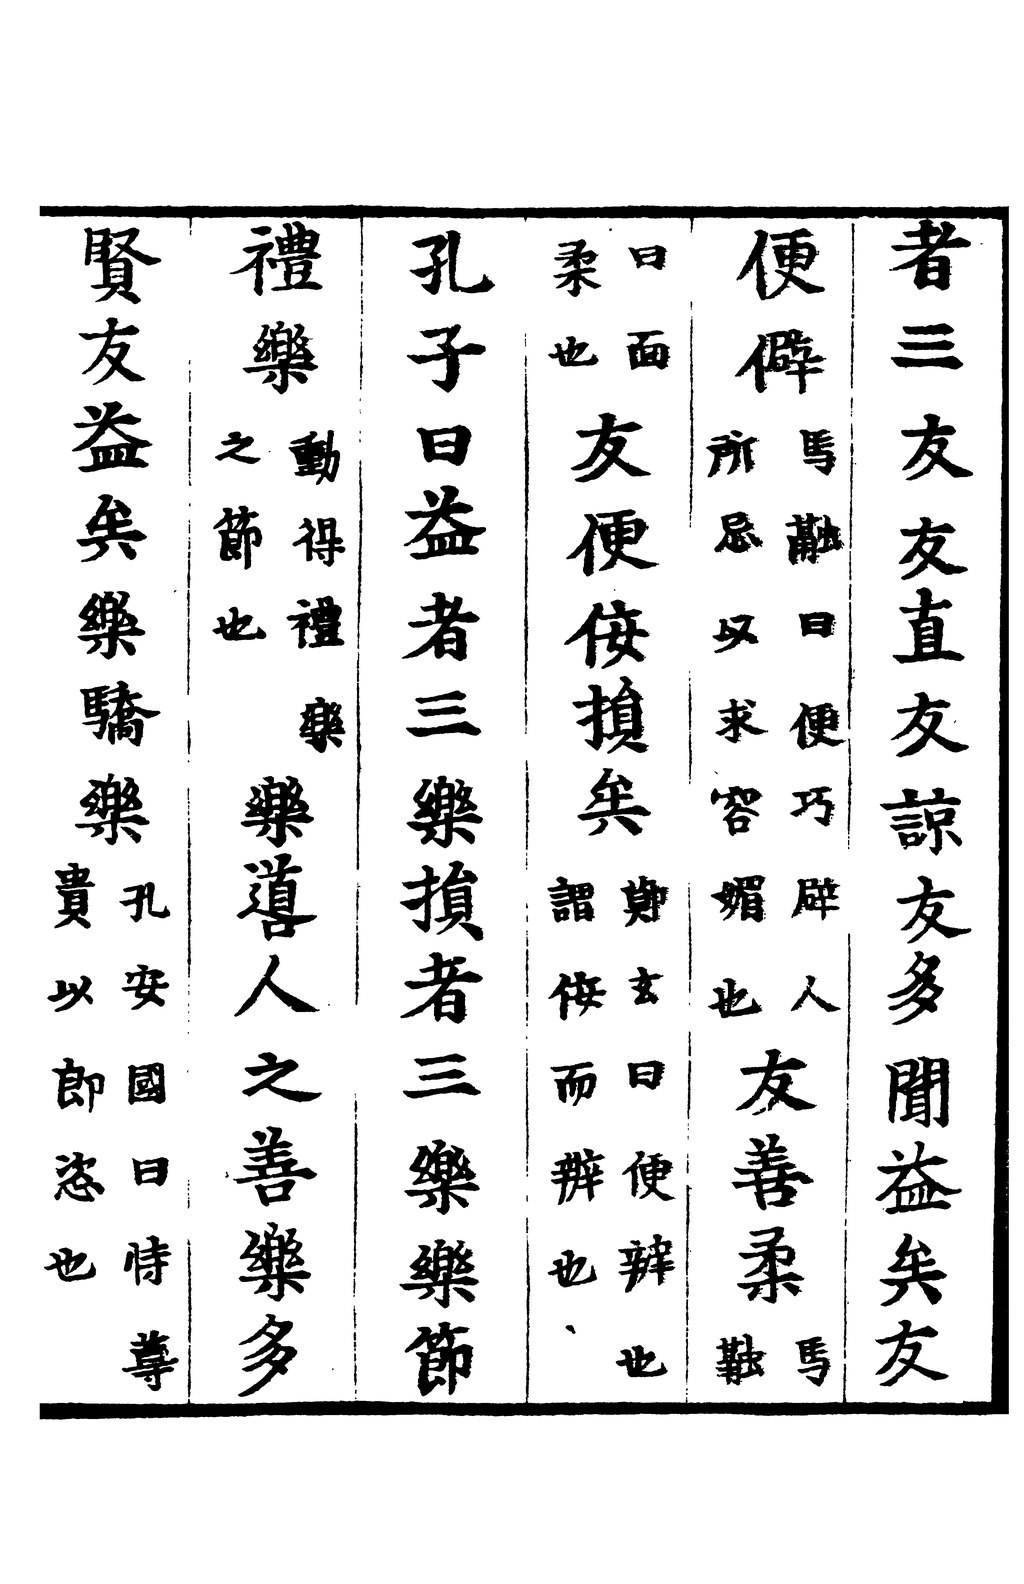 者三友友直友諒友多聞益矣友
便僻馬融曰便巧辟人所忌以求容媚也友善柔馬融
曰面柔也友便佞損矣鄭玄曰便辨也謂佞而辨也
孔子曰益者三樂損者三樂樂節
禮樂動得禮樂之節也樂道人之善樂多
賢友益矣樂驕樂孔安國曰恃尊貴以自恣也